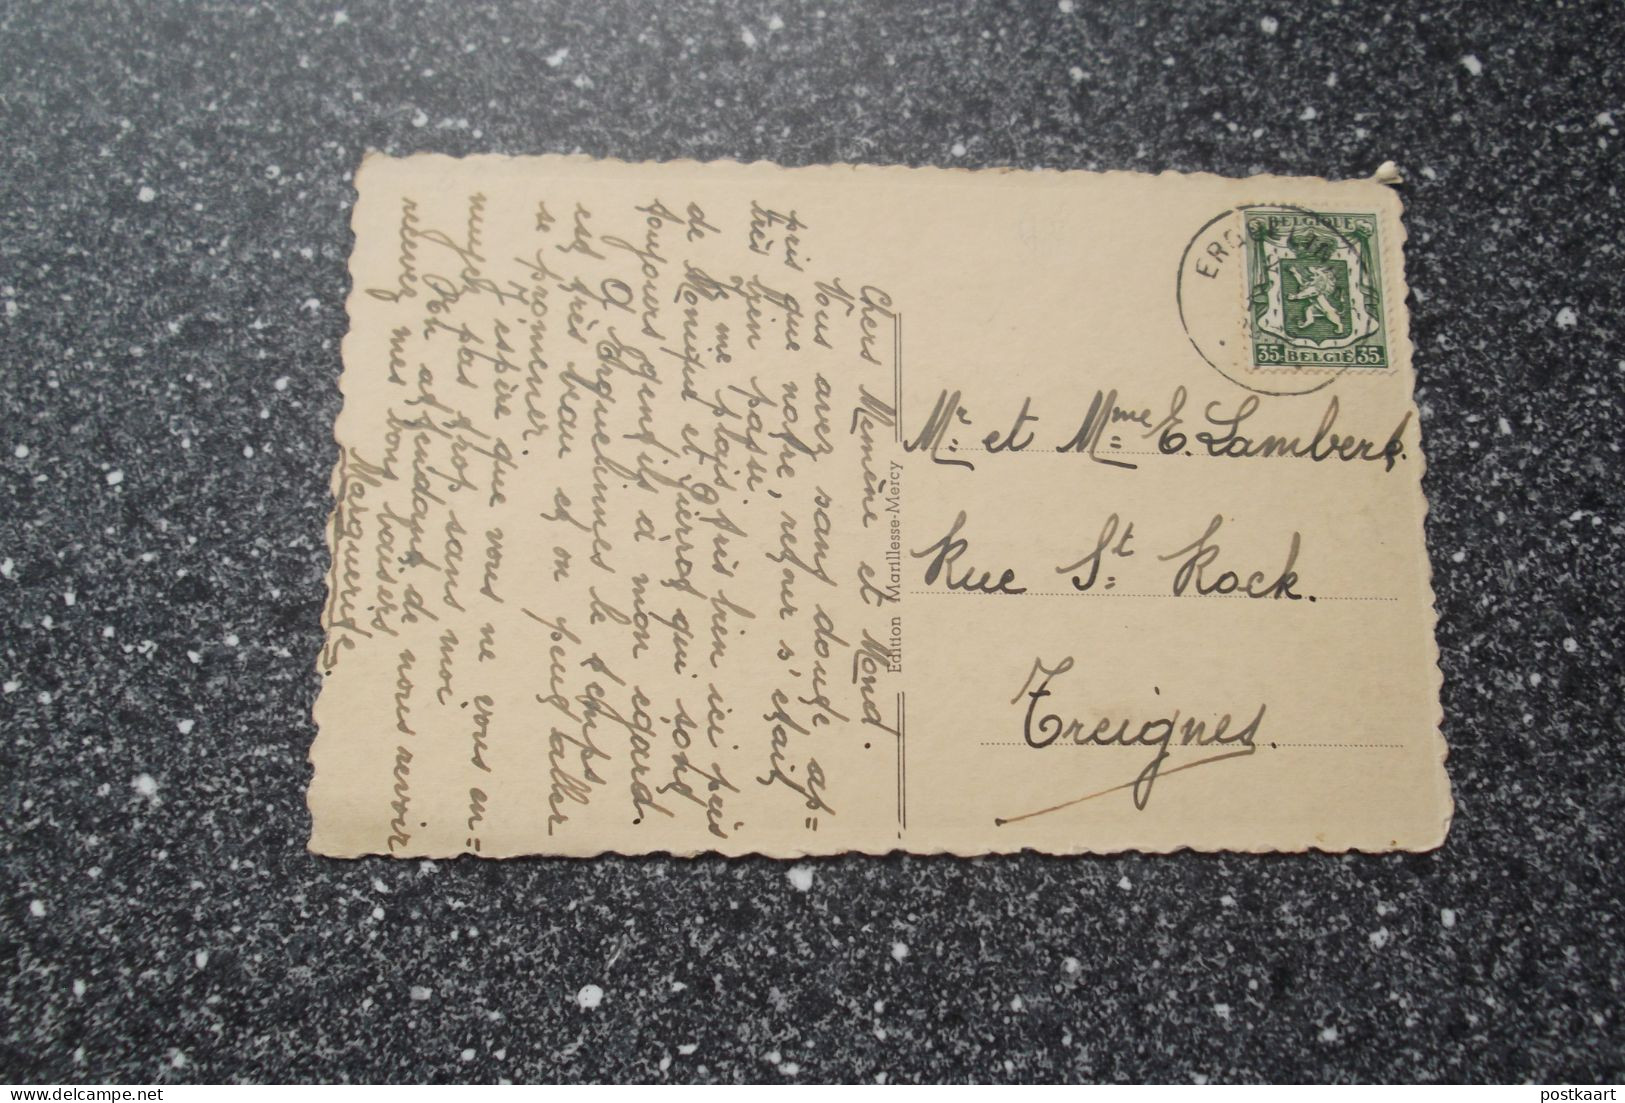 Chers Memène et Nond.
Vous avez sans doute ap=
pris que notre retour s'était
très bien passé.
Je me plais très bien ici près
de Monique et Pierrot qui sont
toujours gentils à mon égard.
A Erquelinnes le temps
est très beau et on peut aller
se promener.
J'espère que vous ne vous en=
nuyez pas trop sans moi
En attendant de nous revoir
recevez mes bons baisers
Marguerite.
Edition Marillesse-Mercy
ERQUELIN
BELGIQUE
35c BELGIË 35c
Mr. et Mme E. Lambert.
Rue St Rock.
Treignes.
delcampe.net
postkaart